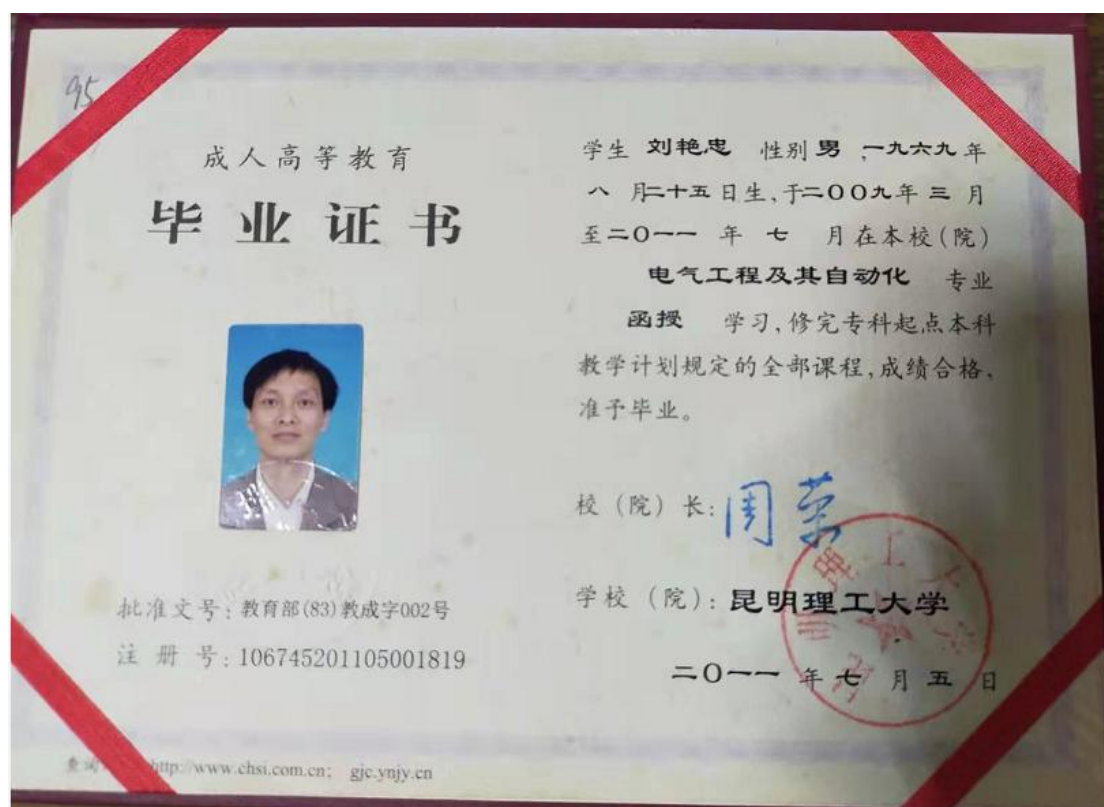 95
成人高等教育
毕业证书
批准文号:教育部(83)教成字002号
注册号:106745201105001819
http://www.chsi.com.cn; gjc.ynjy.cn
学生 刘艳忠 性别 男 ,一九六九年
八 月二十五日生,于二00九年 三 月
至二0一一 年 七 月在本校(院)
电气工程及其自动化 专业
函授 学习,修完专科起点本科
教学计划规定的全部课程,成绩合格,
准予毕业。
校(院)长:周荣
学校(院):昆明理工大学
二0一一 年 七 月 五 日